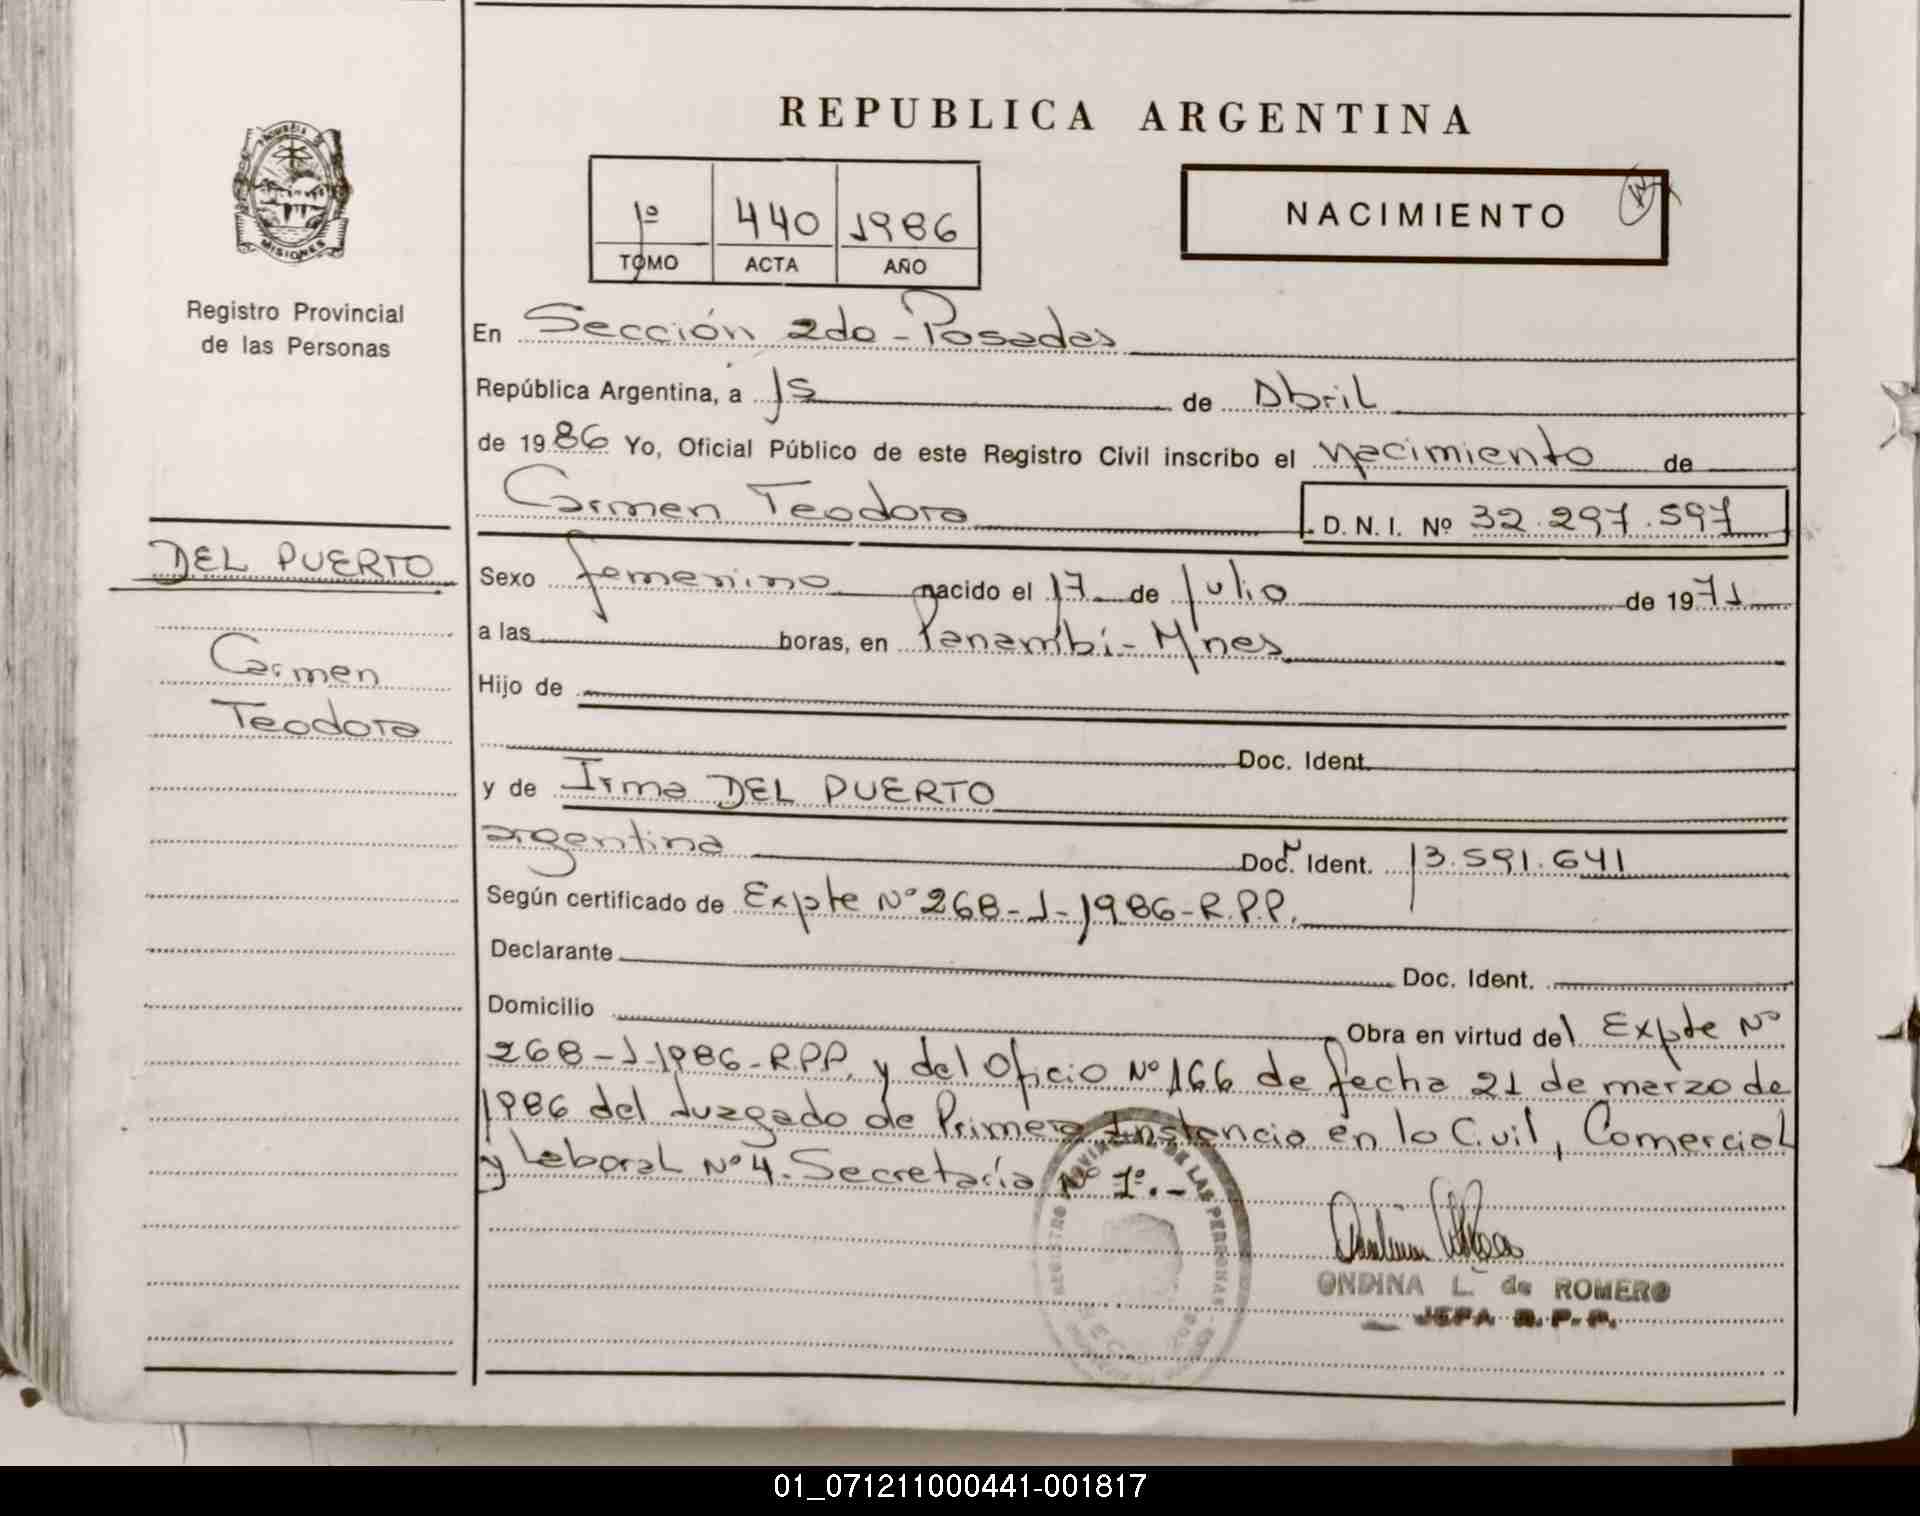 REPUBLICA ARGENTINA
PROVINCIA DE
MISIONES
Registro Provincial
de las Personas
1º 440 1986
TOMO ACTA AÑO
NACIMIENTO
En Sección 2da - Posadas
República Argentina, a 15 de Abril
de 1986 Yo, Oficial Público de este Registro Civil inscribo el Nacimiento de
Carmen Teodora D. N. I. Nº 32.297.597
DEL PUERTO
Carmen
Teodora
Sexo femenino nacido el 17 de Julio de 1971
a las horas, en Panambí - Mnes
Hijo de
Doc. Ident.
y de Irma DEL PUERTO
argentina Doc. Ident. 13.591.641
Según certificado de Expte Nº 268-J-1986-R.P.P.
Declarante Doc. Ident.
Domicilio Obra en virtud del Expte Nº
268-J-1986-R.P.P. y del Oficio Nº 166 de fecha 21 de marzo de
1986 del Juzgado de Primera Instancia en lo Civil, Comercial
y Laboral Nº 4. Secretaría Nº 1º.-
REGISTRO PROVINCIAL DE LAS PERSONAS
ONDINA L. de ROMERO
JEFA R. P. P.
01_071211000441-001817